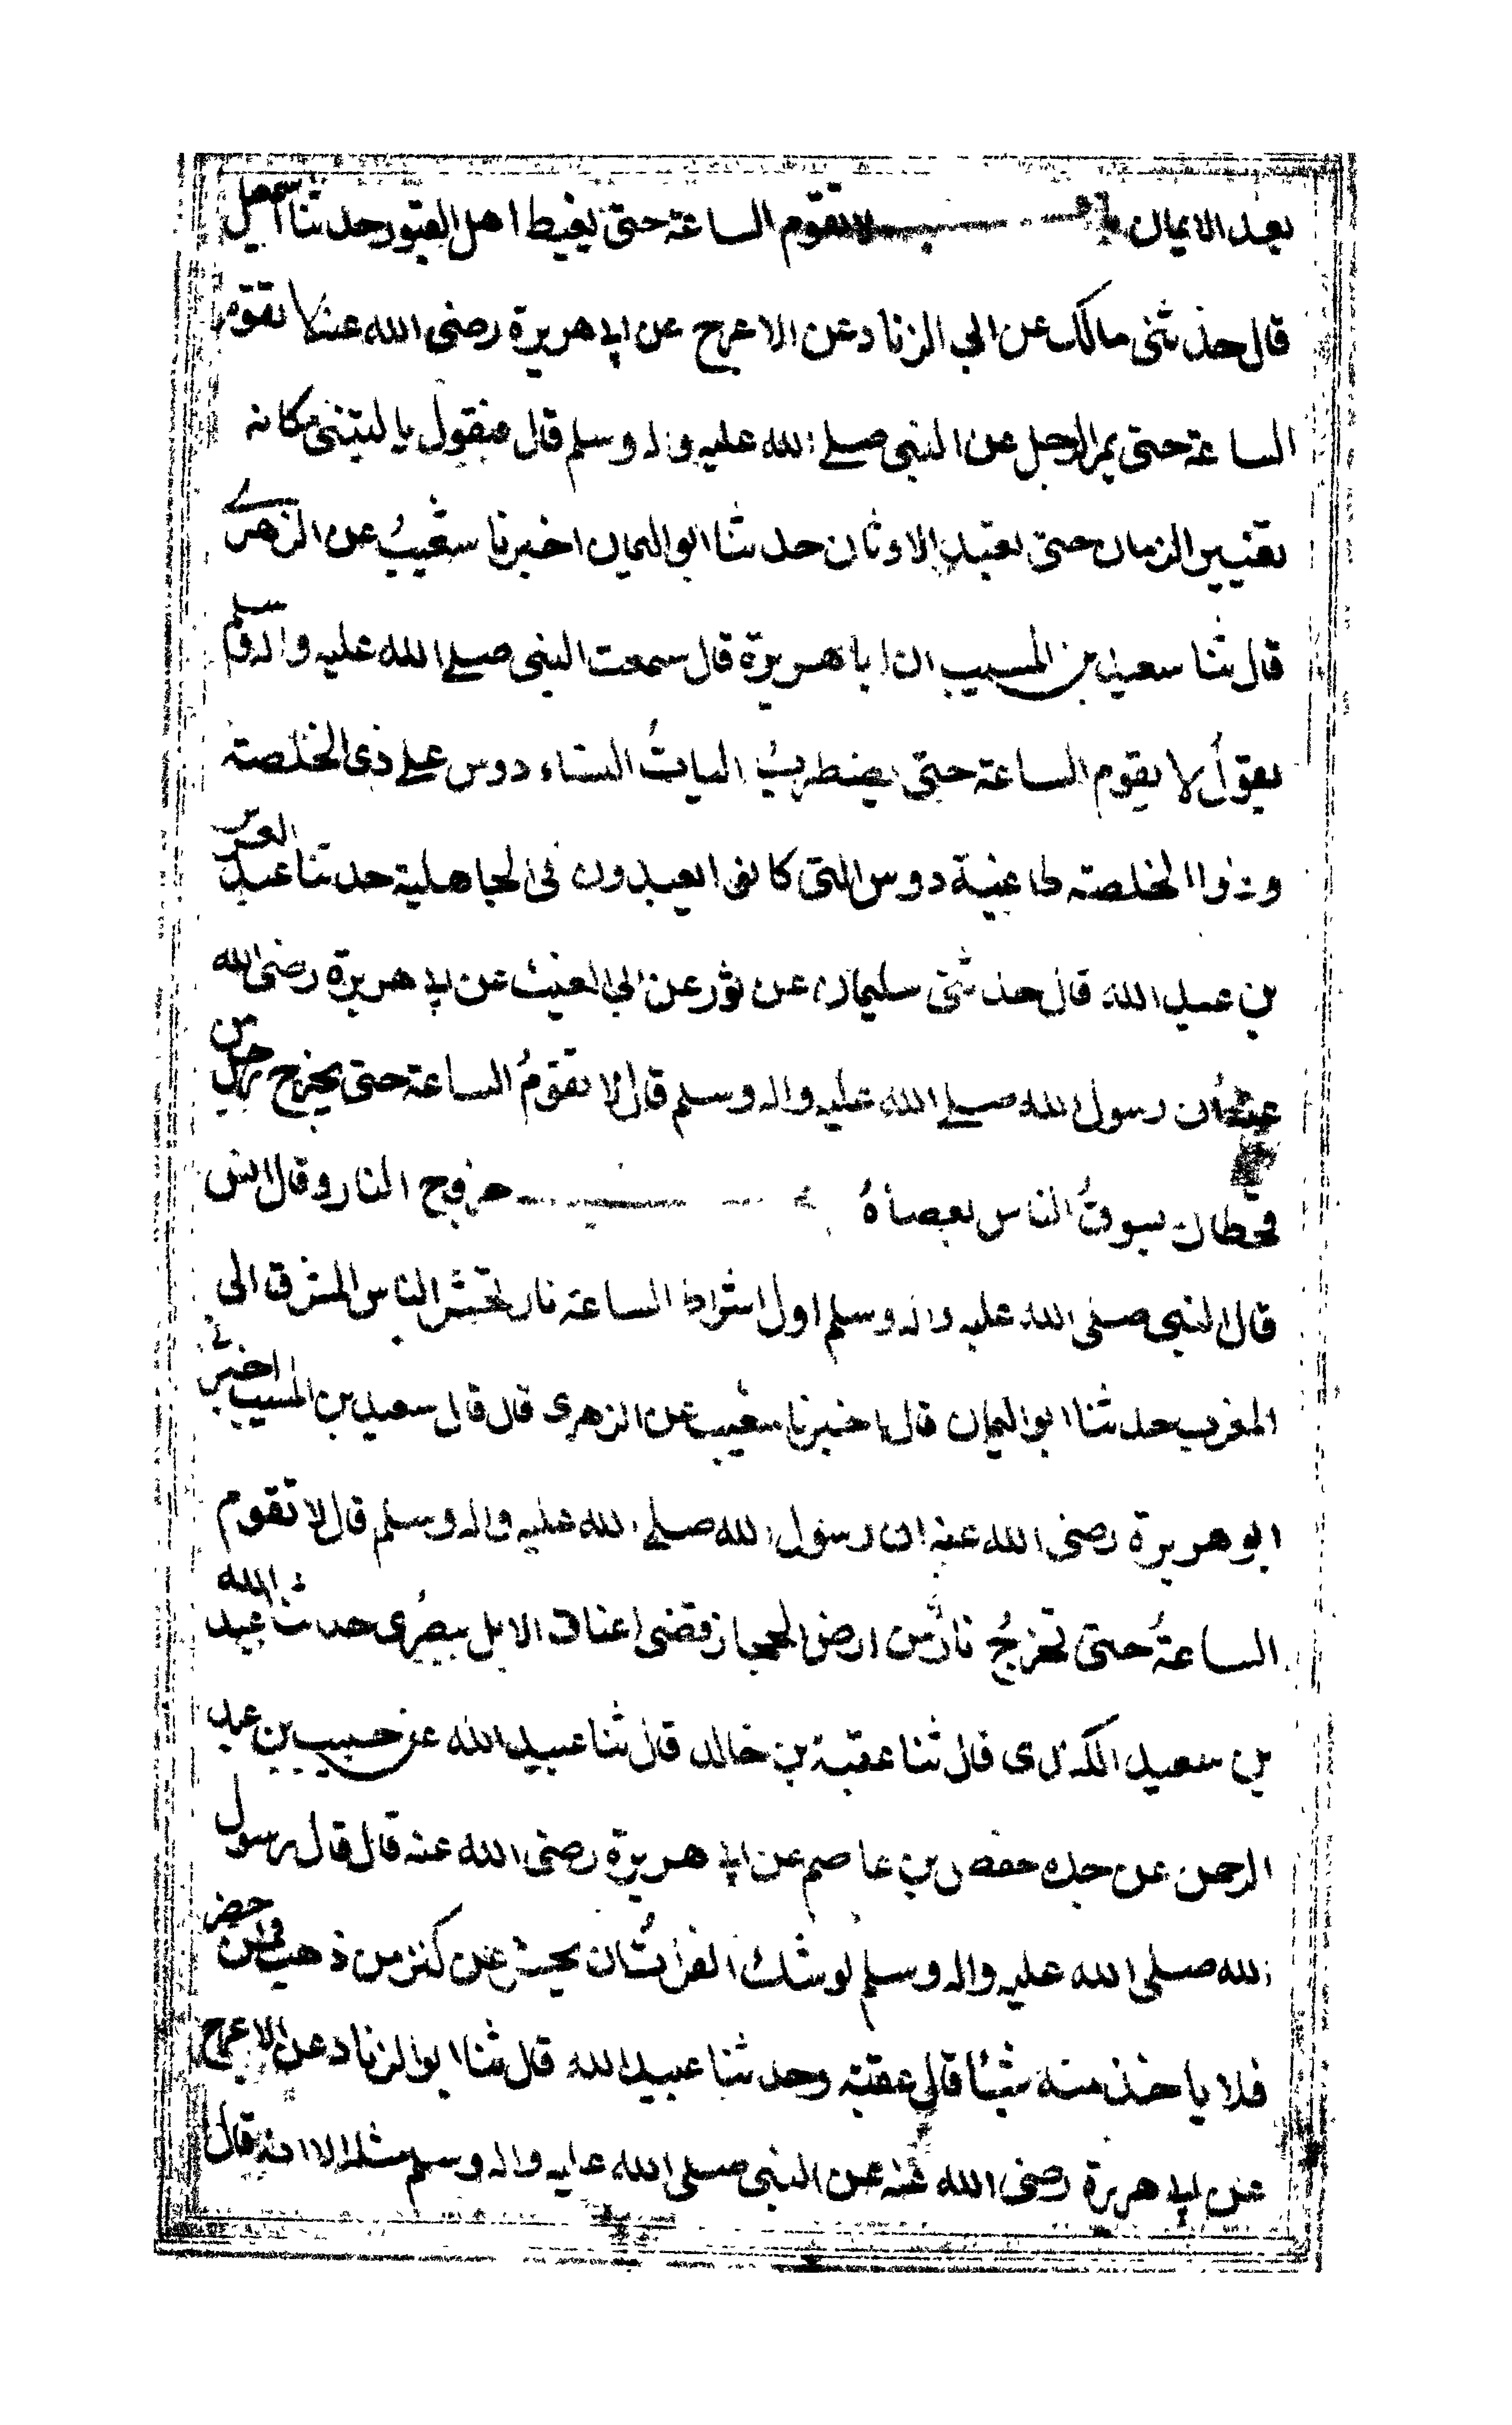 بعد الايمان باب لا تقوم الساعة حتى يغبط اهل القبور حدثنا اسمعيل
قال حدثنى مالك عن ابى الزناد عن الاعرج عن ابى هريرة رضى الله عنه لا تقوم
الساعة حتى يمر الرجل عن النبى صلى الله عليه واله وسلم قال فيقول يا ليتنى مكانه
تغيير الزمان حتى تعبد الاوثان حدثنا ابو اليمان اخبرنا شعيب عن الزهرى
قال ثنا سعيد بن المسيب ان ابا هريرة قال سمعت النبى صلى الله عليه واله وسلم
يقول لا تقوم الساعة حتى يضطرب اليات النساء دوس على ذى الخلصة
وذوا الخلصة طاغية دوس اللتى كانوا يعبدون فى الجاهلية حدثنا عبد العزيز
بن عبد الله قال حدثنى سليمان عن ثور عن ابى الغيث عن ابى هريرة رضى الله
عنه ان رسول الله صلى الله عليه واله وسلم قال لا تقوم الساعة حتى يخرج رجل من
قحطان يسوق الناس بعصاه خروج النار وقال انس
قال النبى صلى الله عليه واله وسلم اول اشراط الساعة نار تحشر الناس المشرق الى
المغرب حدثنا ابو اليمان قال اخبرنا شعيب عن الزهرى قال قال سعيد بن المسيب اخبرنى
ابو هريرة رضى الله عنه ان رسول الله صلى الله عليه واله وسلم قال لا تقوم
الساعة حتى تخرج نار من ارض الحجاز تضى اعناق الابل ببصرى حدثنا عبد الله
بن سعيد الكندى قال ثنا عقبة بن خالد قال ثنا عبيد الله عن خبيب بن عبد
الرحمن عن جده حفص بن عاصم عن ابى هريرة رضى الله عنه قال قال رسول
الله صلى الله عليه واله وسلم يوشك الفرات ان يحسر عن كنز من ذهب فمن حضر
فلا ياخذ منه شيئا قال عقبة وحدثنا عبيد الله قال ثنا ابو الزناد عن الاعرج
عن ابى هريرة رضى الله عنه عن النبى صلى الله عليه واله وسلم مثله الا انه قال